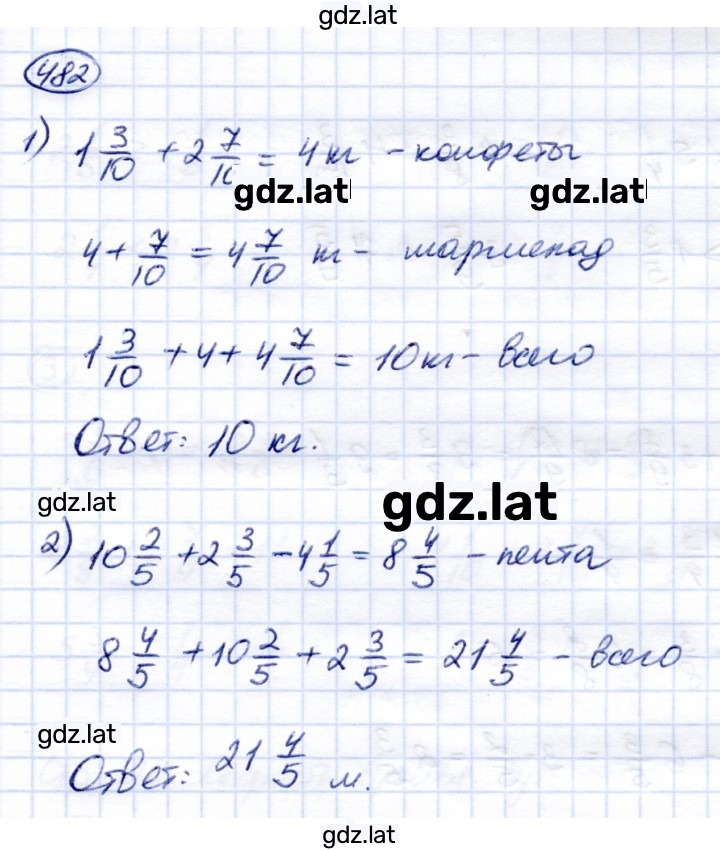 gdz.lat
482
1) 1 3/10 + 2 7/10 = 4 кг - конфеты
gdz.lat gdz.lat
4 + 7/10 = 4 7/10 кг - мармелад
1 3/10 + 4 + 4 7/10 = 10 кг - всего
Ответ: 10 кг.
gdz.lat gdz.lat
2) 10 2/5 + 2 3/5 - 4 1/5 = 8 4/5 - лента
8 4/5 + 10 2/5 + 2 3/5 = 21 4/5 - всего
gdz.lat
Ответ: 21 4/5 м.
gdz.lat